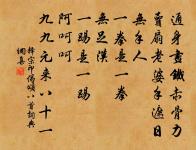 通身畫鐵赤骨力
賣扇老婆手遮日
無手人
一拳是一拳
無足漢
一踢是一踢
阿呵呵
九九元來八十一
釋宗印偈頌八首詞典
網